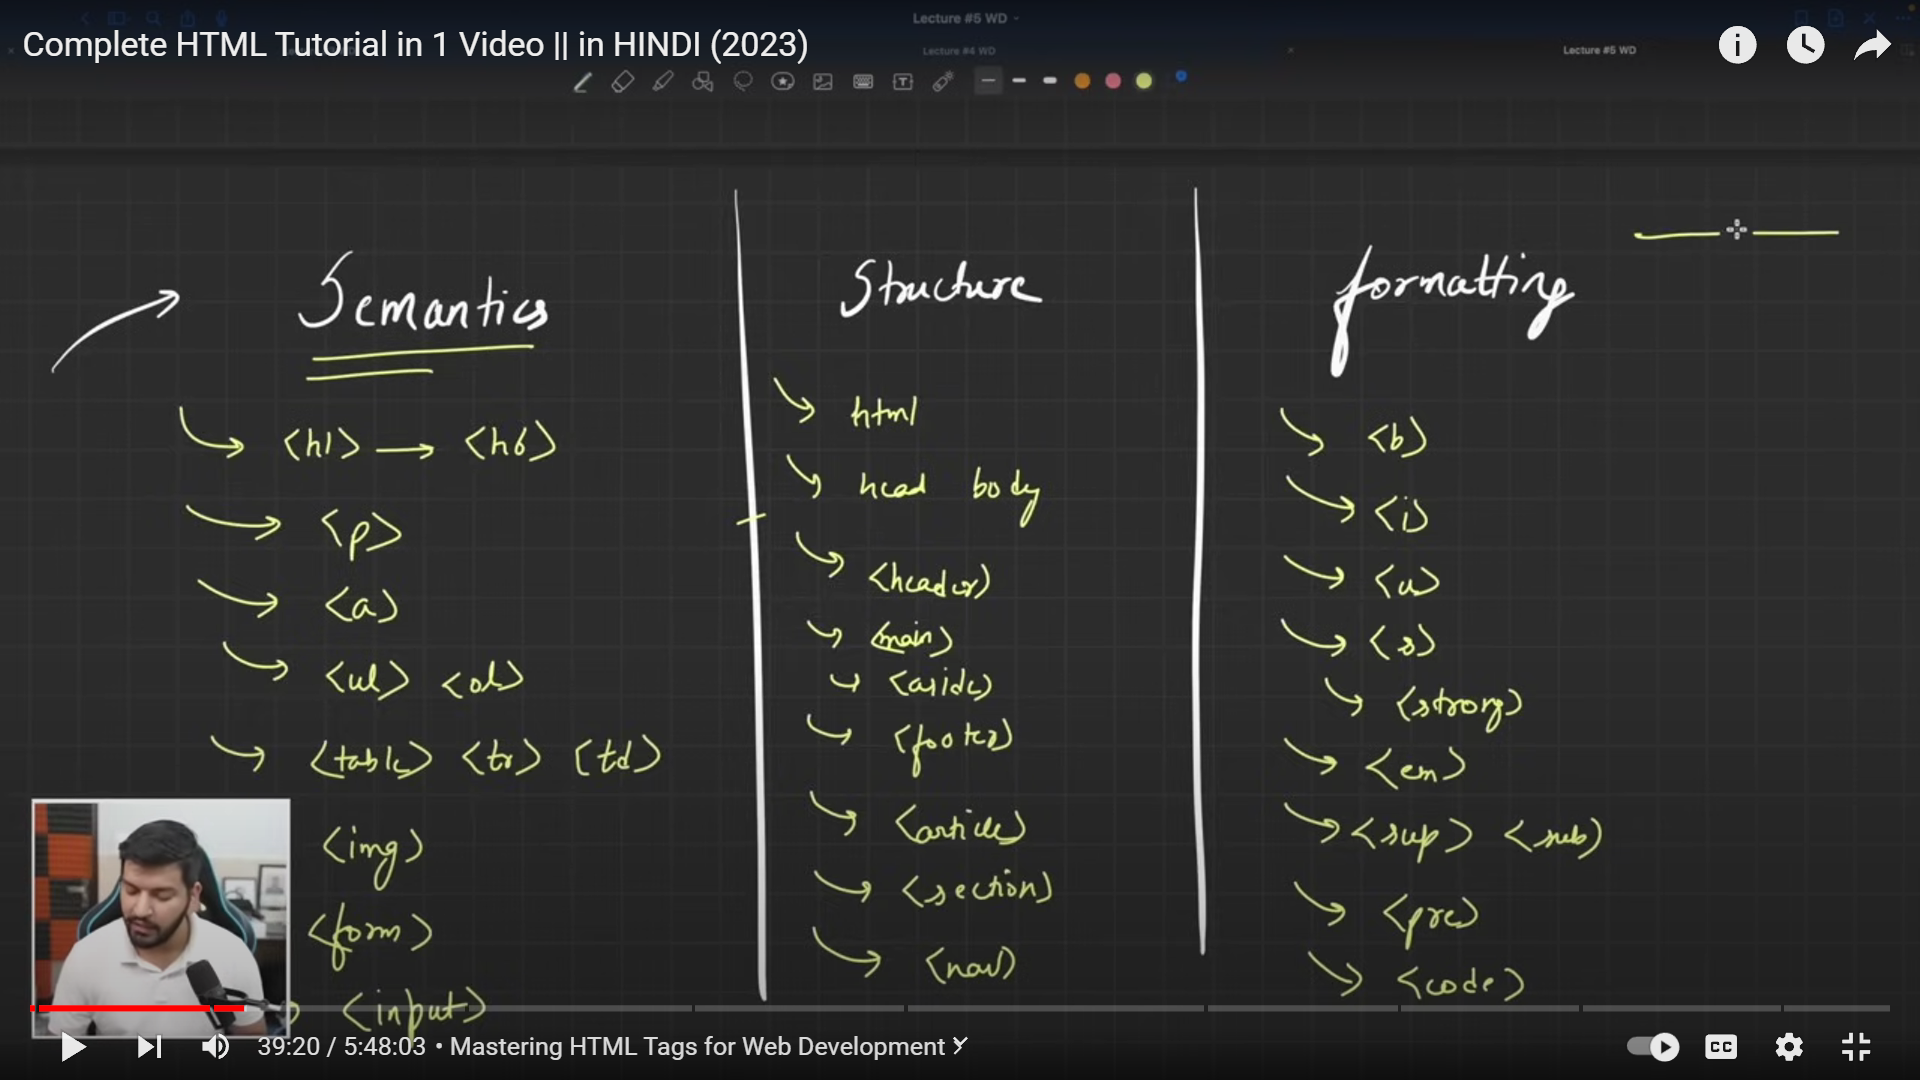 Lecture #5 WD
Complete HTML Tutorial in 1 Video || in HINDI (2023)
Lecture #4 WD
Lecture #5 WD
Semantics
<h1> → <h6>
<p>
<a>
<ul> <ol>
<table> <tr> <td>
<img>
<form>
<input>
Structure
html
head body
<header>
<main>
<aside>
<footer>
<article>
<section>
<nav>
formatting
<b>
<i>
<u>
<s>
<strong>
<em>
<sup> <sub>
<pre>
<code>
39:20 / 5:48:03 • Mastering HTML Tags for Web Development
CC